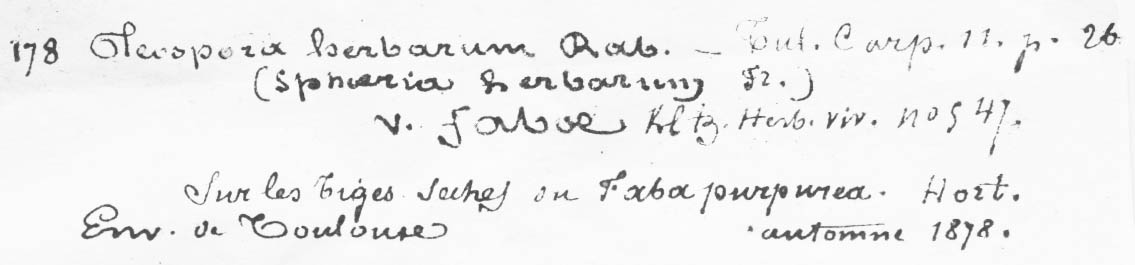 178 Pleospora herbarum Rab. — Tul. Carp. 11. p. 26
(Sphæria herbarum Fr.)
v. fabæ Kltz. Herb. viv. no 547.
Sur les tiges sèches du Faba purpurea. Hort.
Env. de Toulouse automne 1878.